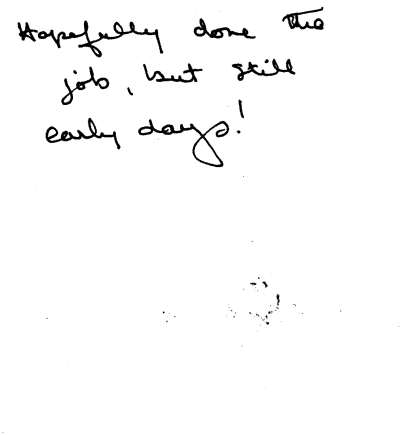 Hopefully done the
job, but still
early days!